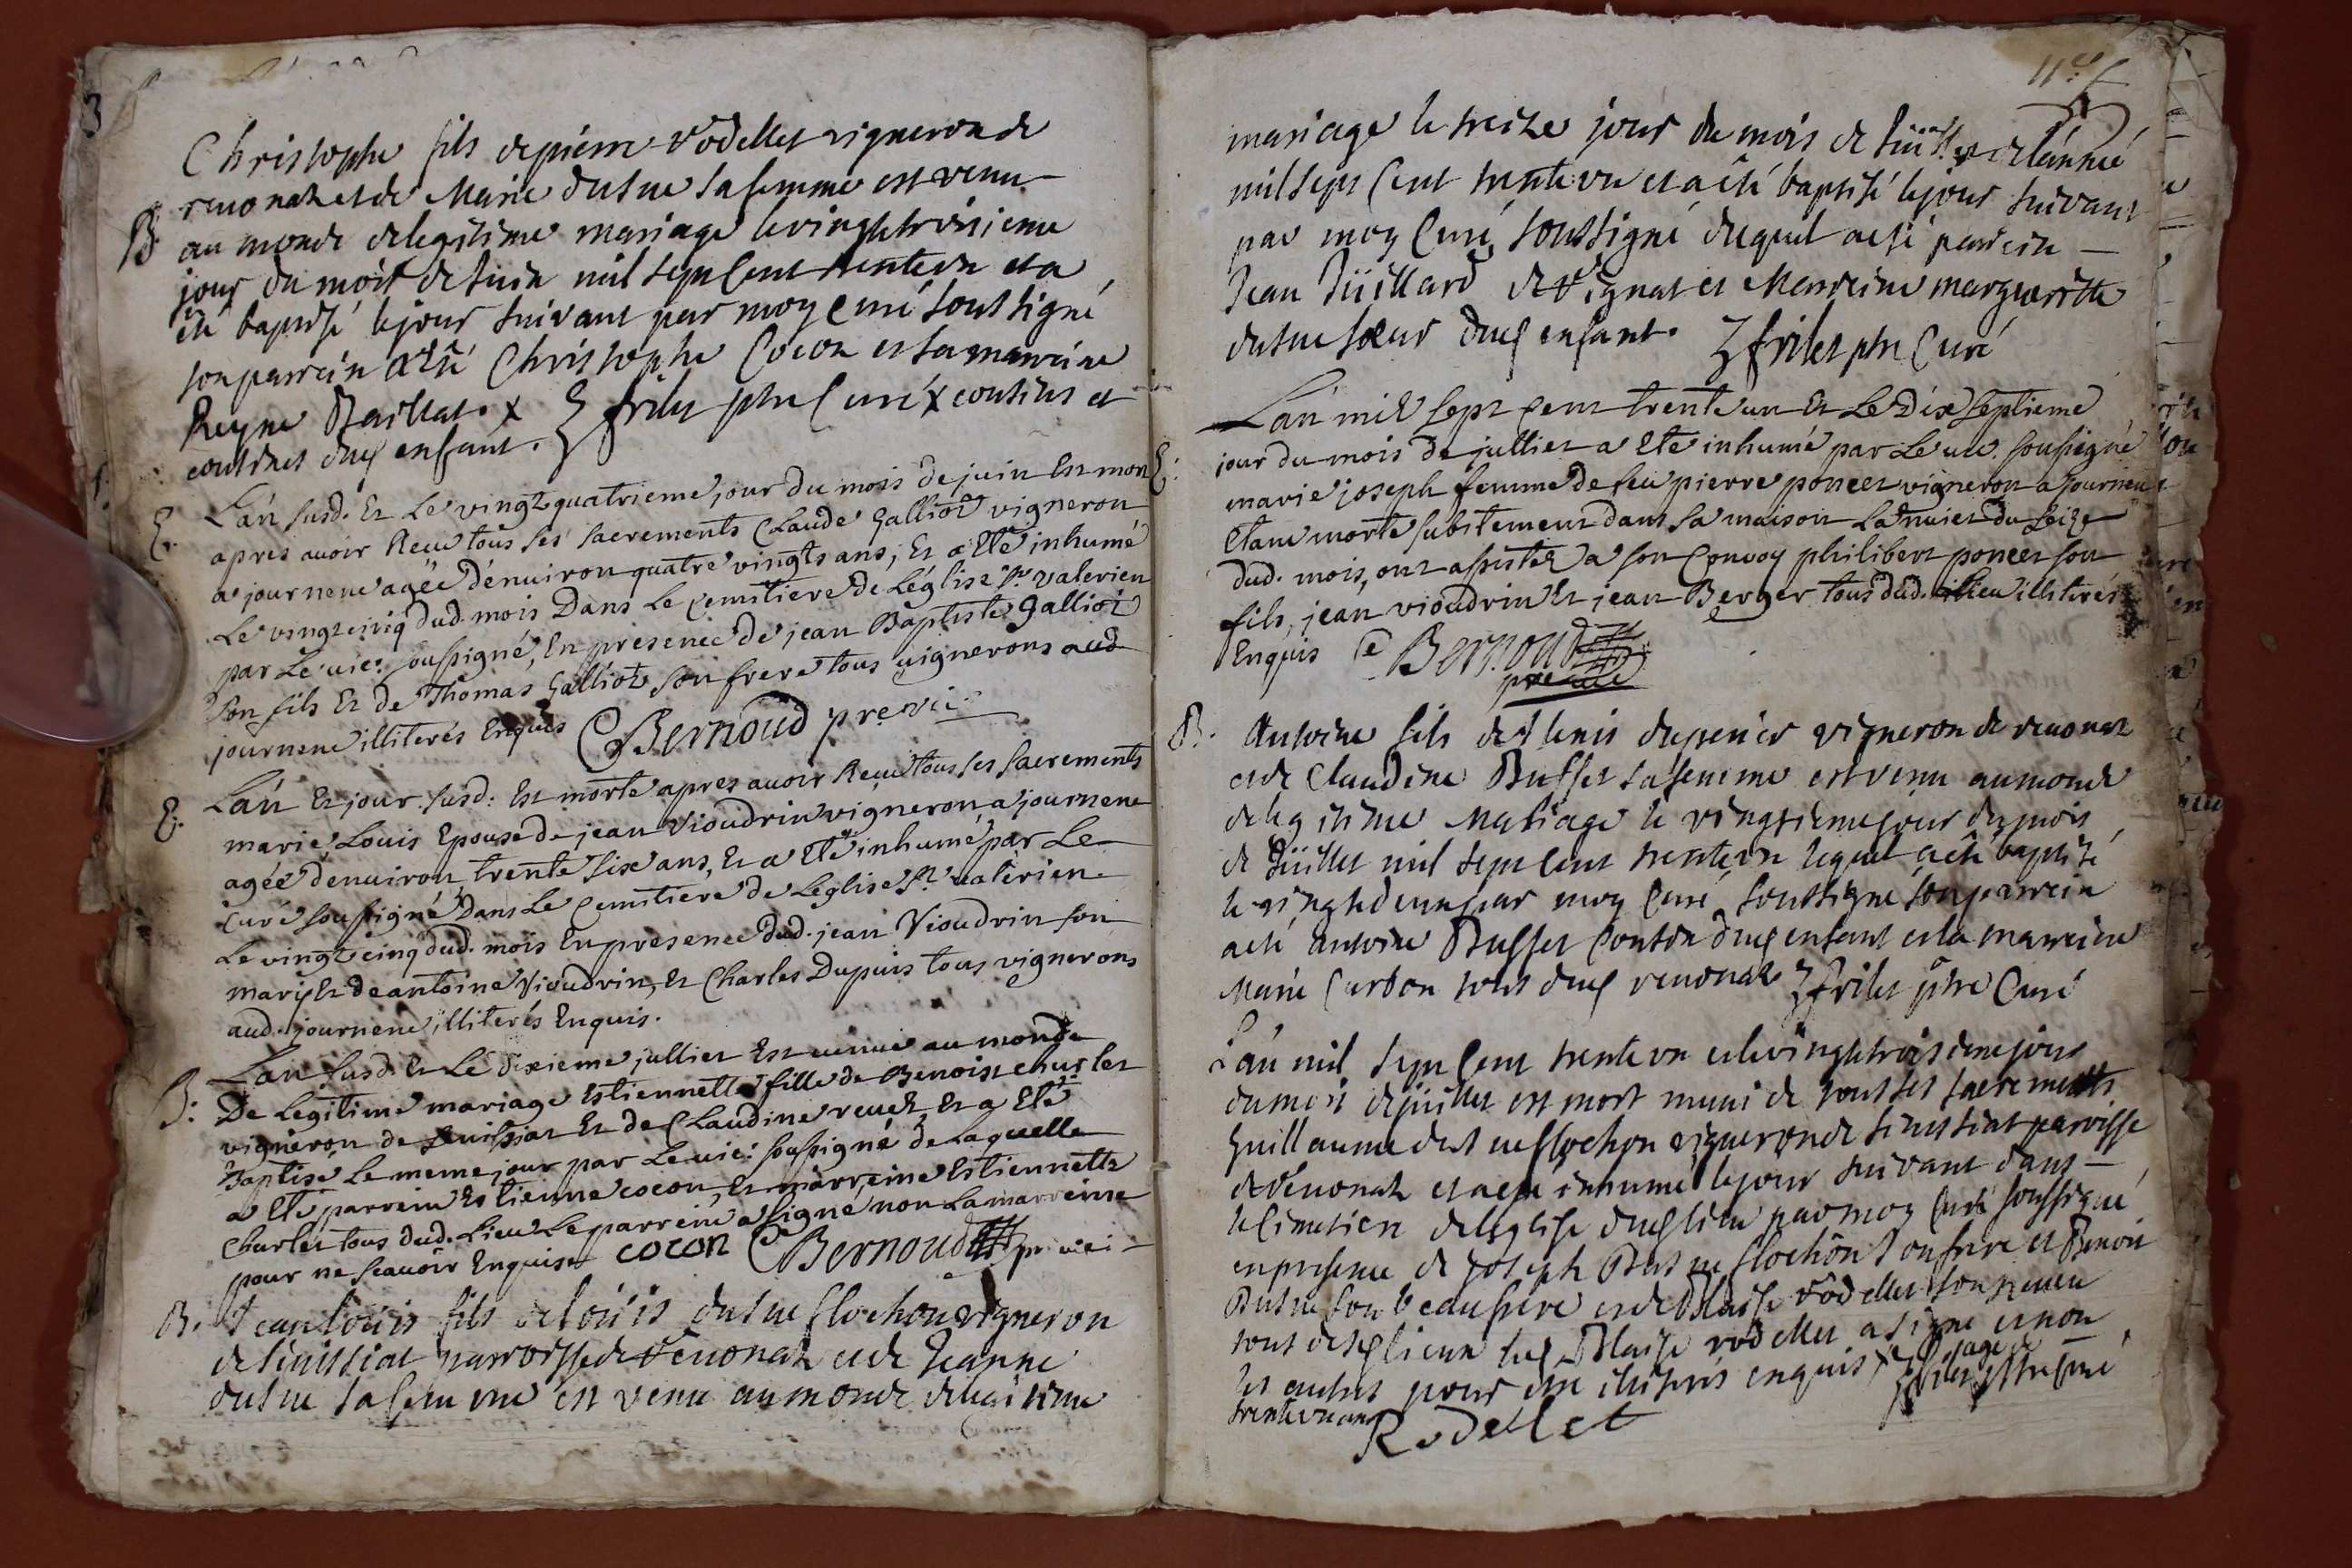 3
Christophe fils de pierre Rodellet vigneron de
reuonaz et de Marie dutue sa femme est venu
B au monde de legitime mariage le vingthroisieme
jour du mois de Juin mil sept Cent trente vn et a
été baptisé le jour suivant par moy Curé soussigné
son parrein a esté Christophe Cocon et sa marreine
Reyne Baillat. x frilet ptre Curé x cousins et
cousines dud enfant.
E. L'an susd. Et Le vingt quatrieme jour du mois de juin Est mort
apres auoir Receu tous ses sacrements Claude Galliot vigneron
a journene agée d'enuiron quatre vingts ans, Et a Eté inhumé
Le vingtcinq dud. mois Dans Le Cemitiere de L'église St valerien
par Le vic: soussigné, En presence de jean Baptiste Galliot
son fils Et de Thomas Galliot son frere tous vignerons aud
journene illiterés Enquis Bernoud pre vic
E: L'an Et jour susd: Est morte apres auoir Receu tous ses sacrements
marie Louis Epouse de jean Vioudrin vigneron a journene
agée d'enuiron trente six ans, Et a Eté inhumé par Le
Curé soussigné Dans Le Cemitiere de L'eglise St valerien
Le vingt cinq dud. mois En presence dud. jean Vioudrin son
mari Et de antoine Vioudrin, Et Charles Dupuis tous vignerons
aud. journene illiterés Enquis.
B: L'an susd. Et Le dixieme jullier Est venue au monde
De Legitime mariage Estiennette fille de Benoist churlet
vigneron de senissiat Et de Claudine reuet Et a Eté
Baptisé Le meme jour par Le vic: soussigné de Laquelle
a Eté parrein Estienne cocon, Et marreine Estiennette
Churlet tous dud. Lieu Le parrein a signé non La marreine
pour ne scauoir Enquise cocon Bernoud pr vic
B. Jean louis fils de louis dutue flochon vigneron
de senissiat parroisse de Reuonaz et de Jeanne
dutue sa femme est venu au monde de legitime
11e
mariage le treize jour du mois de Juillet de l'année
mil sept Cent trente vn et a été baptisé le jour suivant
par moy Curé soussigné duquel a esté parrein
Jean Juillard de Vignat et Marreine margueritte
dutue sœur dud enfant. frilet ptre Curé
E: L'an mil sept Cent trente un Et Le Dix septieme
jour du mois de jullier a Eté inhumé par Le vic. soussigné
marie joseph femme de feu pierre poncet vigneron a journene
Etant morte subitement dans sa maison La nuict du seize
dud. mois, ont assistez a son Convoy philibert poncet son
fils, jean vioudrin Et jean Berger tous dud. Lieu illiterés
Enquis Bernoud
pre vic
B. Antoine fils de denis duperier vigneron de reuonaz
et de Claudine Buffet sa femme est venu au monde
de legitime Mariage le vingtieme jour du mois
de Juillet mil sept Cent trente vn lequel a été baptisé
le vingtdeux par moy Curé soussigné son parrein
a été antoine Buffet Cousin dud enfant et la marreine
Marie Curbon tous dud reuonaz frilet ptre Curé
L'an mil sept Cent trente vn et le vingthroisieme jour
du mois de juillet est mort muni de tous ses sacrements
Guillaume dutue flochon vigneron de senissiat parroisse
de Reuonaz et a esté inhumé le jour suivant dans
le Cimetiere de leglise dud lieu par moy Curé soussigné
en presence de joseph dutue flochon son frere et Benoit
Dutue son beaufrere et de Blaise Rodellet son neueu
tous desd lieux led Blaise rodellet a signé et non
les autres pour etre illiterés enquis x frilet ptre Curé
x agé de
trente vn ans
Rodellet